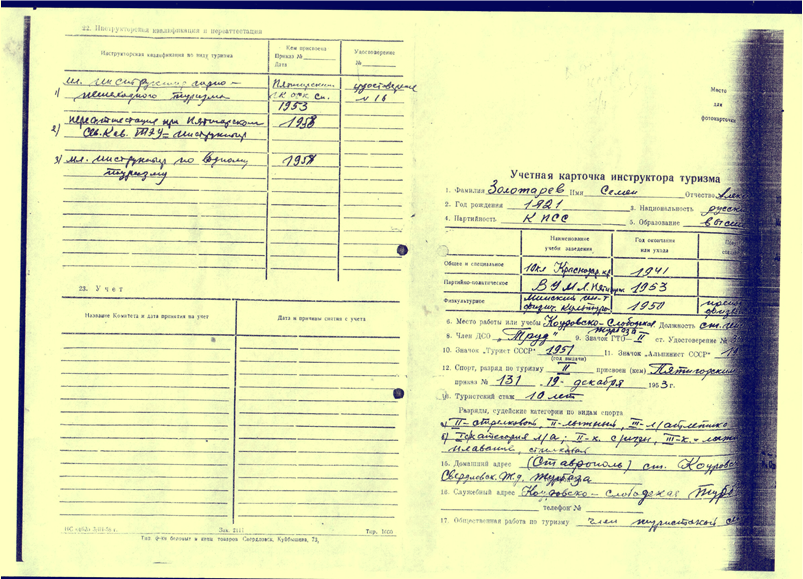 22. Инструкторская квалификация и переаттестации
Инструкторская квалификация по виду туризма
Кем присвоена
Приказ №
Дата
Удостоверение
№
1) мл. инструктор
пешеходного туризма
Пятигорским
1953
удостоверение
№ 16
2) переаттестация при Пятигорском
Сев. Кав. ТЭУ = инструктор
1958
3) мл. инструктор по водному
туризму
1958
23. Учет
Название Комитета и дата принятия на учет
Дата и причины снятия с учета
Зак. 2111
Тир. 1000
Тип. ф-ки беловых и канц. товаров. Свердловск, Куйбышева,
Место
для
фотокарточки
Учетная карточка инструктора туризма
1. Фамилия Золотарев Имя Семен Отчество
2. Год рождения 1921 3. Национальность
4. Партийность КПСС 5. Образование
Наименование
учебн заведения
Год окончания
или ухода
Общее и специальное 10 кл Краснодар. кр. 1941
Партийно-политическое ВУМЛ. Пятигорск 1953
Физкультурное Минский ин-т
физич. культуры 1950
6. Место работы или учебы Коуровско-Слободская
турбаза Должность
8. Член ДСО „Труд" 9. Значок ГТО II ст. Удостоверение №
10. Значок „Турист СССР" 1951 11. Значок „Альпинист СССР"
(год выдачи)
12. Спорт, разряд по туризму II присвоен (кем) Пятигорским
приказ № 131 „19" декабря 1953 г.
Туристский стаж 10 лет
Разряды, судейские категории по видам спорта
а) II-стрелковой, II-лыжный, III-л/атлетике
плавание, стрелковой
15. Домашний адрес (Ставрополь) ст. Коуровка
Свердловск. ж.д. турбаза
16. Служебный адрес Коуровско-слободская
телефон №
17. Общественная работа по туризму член туристской